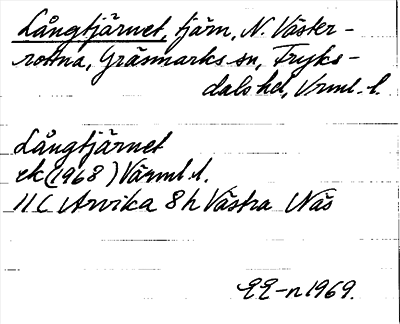 Långtjärnet, tjärn, N. Väster-
rottna, Gräsmarks sn, Fryks-
dals hd, Vrml. l.
Långtjärnet
ek (1968) Värml. l.
11 C Arvika 8 h Västra Näs
EE-n 1969.